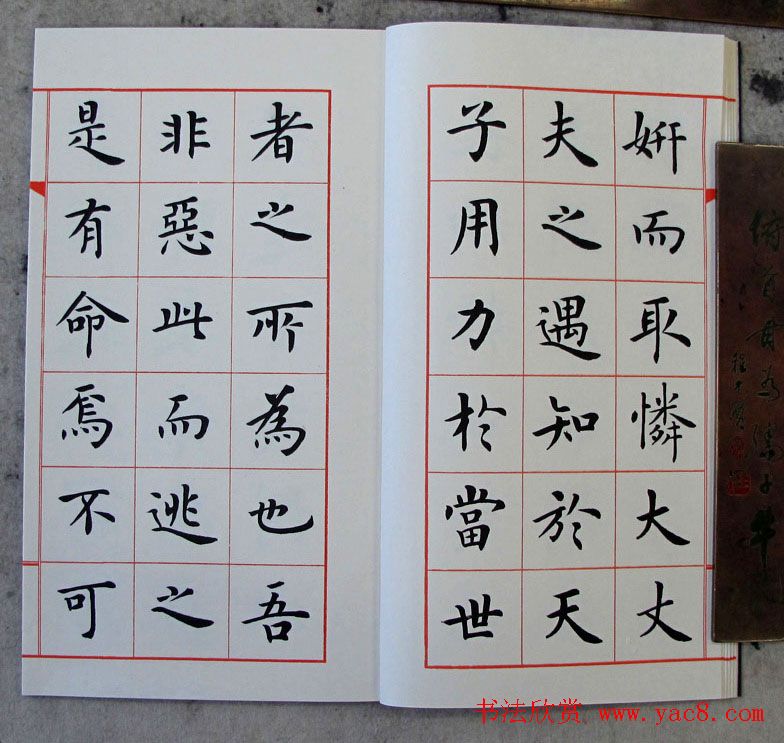 妍而取憐大丈
夫之遇知於天
子用力於當世
者之所為也吾
非惡此而逃之
是有命焉不可
书法欣赏 www.yac8.com